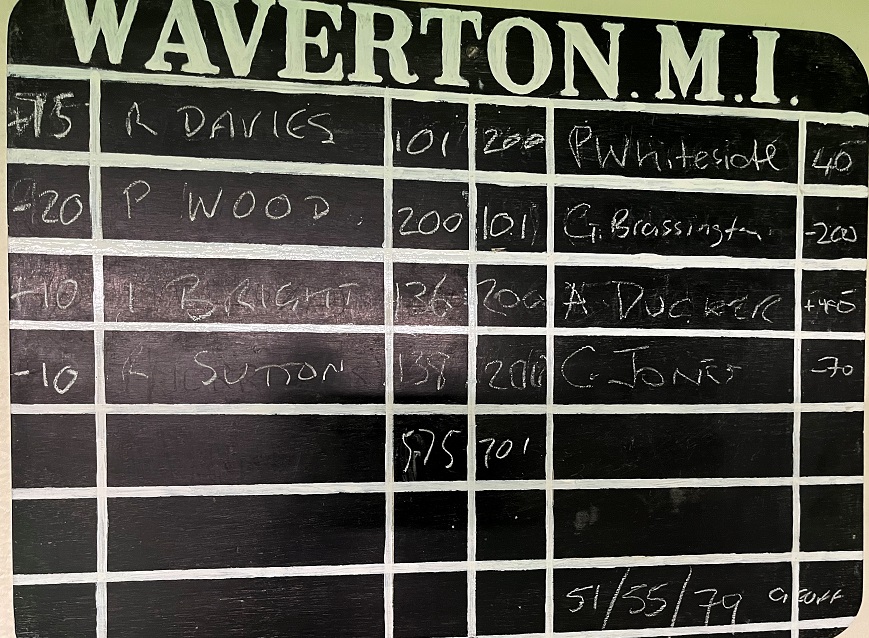 WAVERTON. M. I.
R DAVIES 101 200 P Whiteside 40
-20 P WOOD 200 101 G. Brassington -200
-10 I BRIGHT 136 200 A DUCKER
-10 K SUTTON 138 200 C JONES -70
575 701
51/55/79